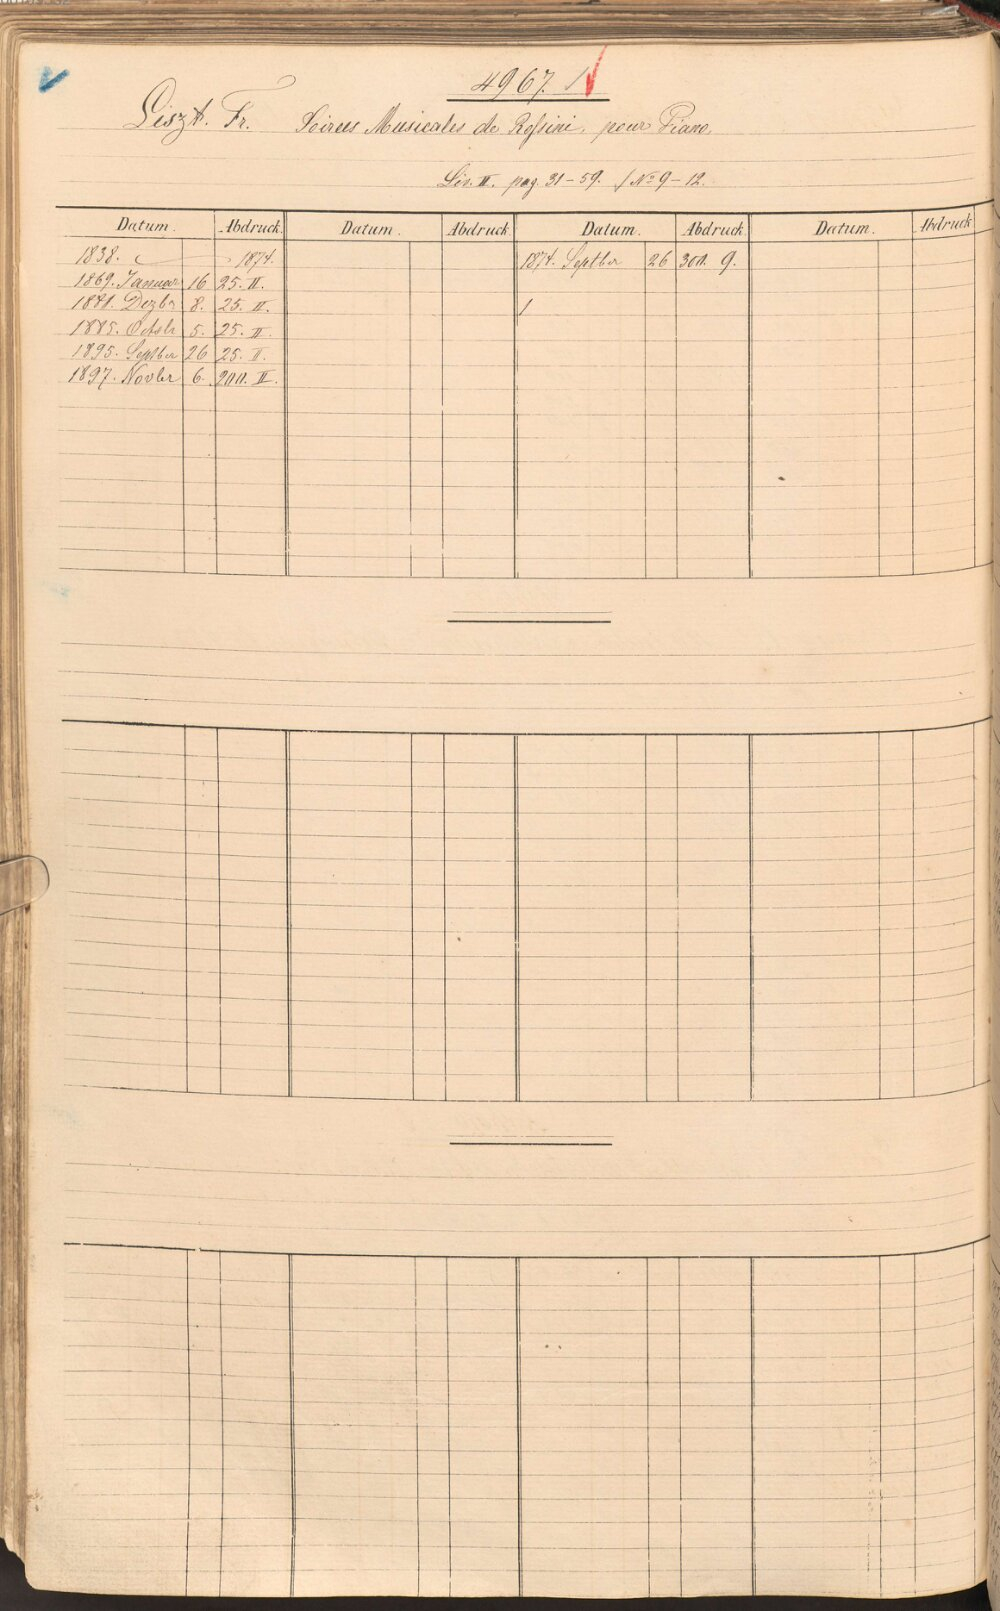 4967.
Liszt. Fr. Soirées Musicales de Rossini, pour Piano.
Liv. II. pag. 31-59. / No 9-12.
Datum. Abdruck. Datum. Abdruck Datum. Abdruck. Datum. Abdruck
1838. 1874. 1874. Septber 26 300. 9.
1869. Januar 16 25. II.
1881. Dezbr 8. 25. II.
1885. Octobr 5. 25. II.
1895. Septber 26 25. II.
1897. Novbr 6. 200. II.